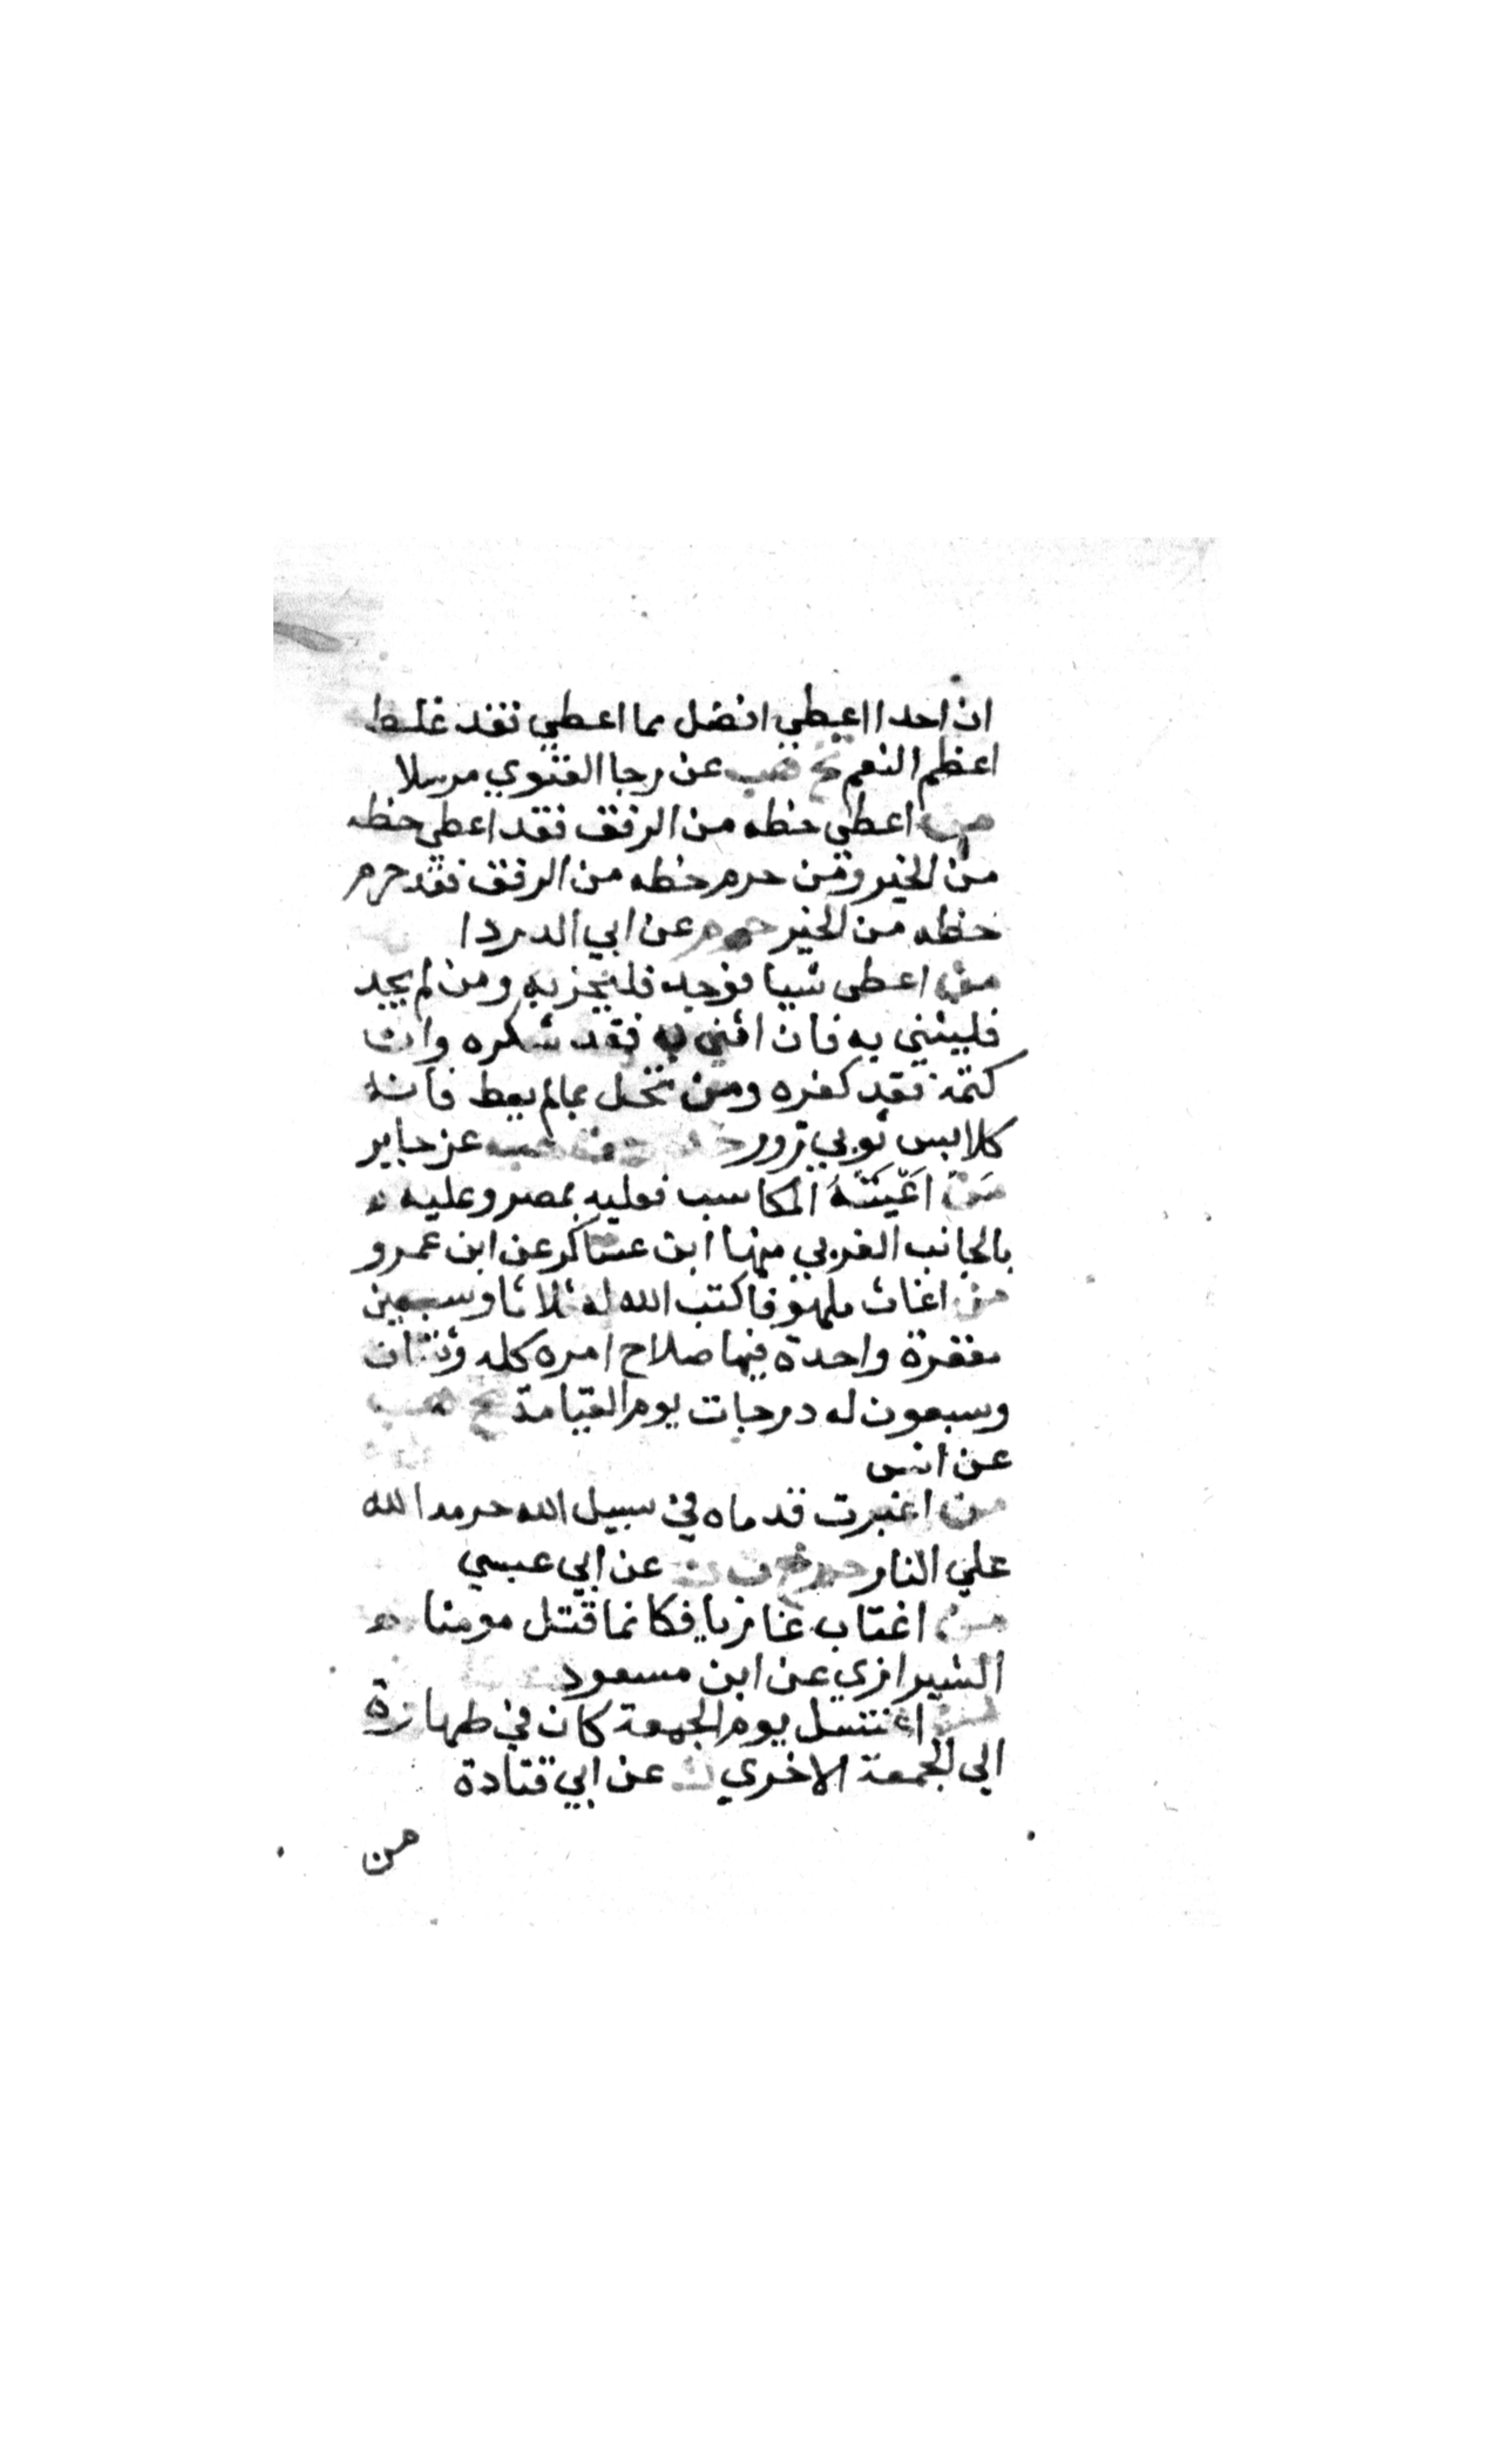 ان احدا اعطي افضل مما اعطي فقد غلط
اعظم النعم تخ هب عن رجا الغنوي مرسلا
من اعطي حظه من الرفق فقد اعطي حظه
من الخير ومن حرم حظه من الرفق فقد حرم
حظه من الخير حم عن ابي الدردا
من اعطى شيا فوجد فليجز به ومن لم يجد
فليثني به فان اثني به فقد شكره وان
كتمه فقد كفره ومن تحل بما لم يعط فانه
كلابس ثوبي زور عن جابر
مَن اَعْيَتْهُ المكاسب فعليه بمصر وعليه
بالجانب الغربي منها ابن عساكر عن ابن عمرو
من اغاث ملهوفا كتب الله له ثلاثا وسبعين
مغفرة واحدة فيها صلاح امره كله وثنتان
وسبعون له درجات يوم القيامة تخ هب
عن انس
من اغبرت قدماه في سبيل الله حرمه الله
علي النار حم خ ت ن عن ابي عبسي
من اغتاب غازيا فكانما قتل مومنا
الشيرازي عن ابن مسعود
من اغتسل يوم الجمعة كان في طهارة
الي الجمعة الاخري ك عن ابي قتادة
من